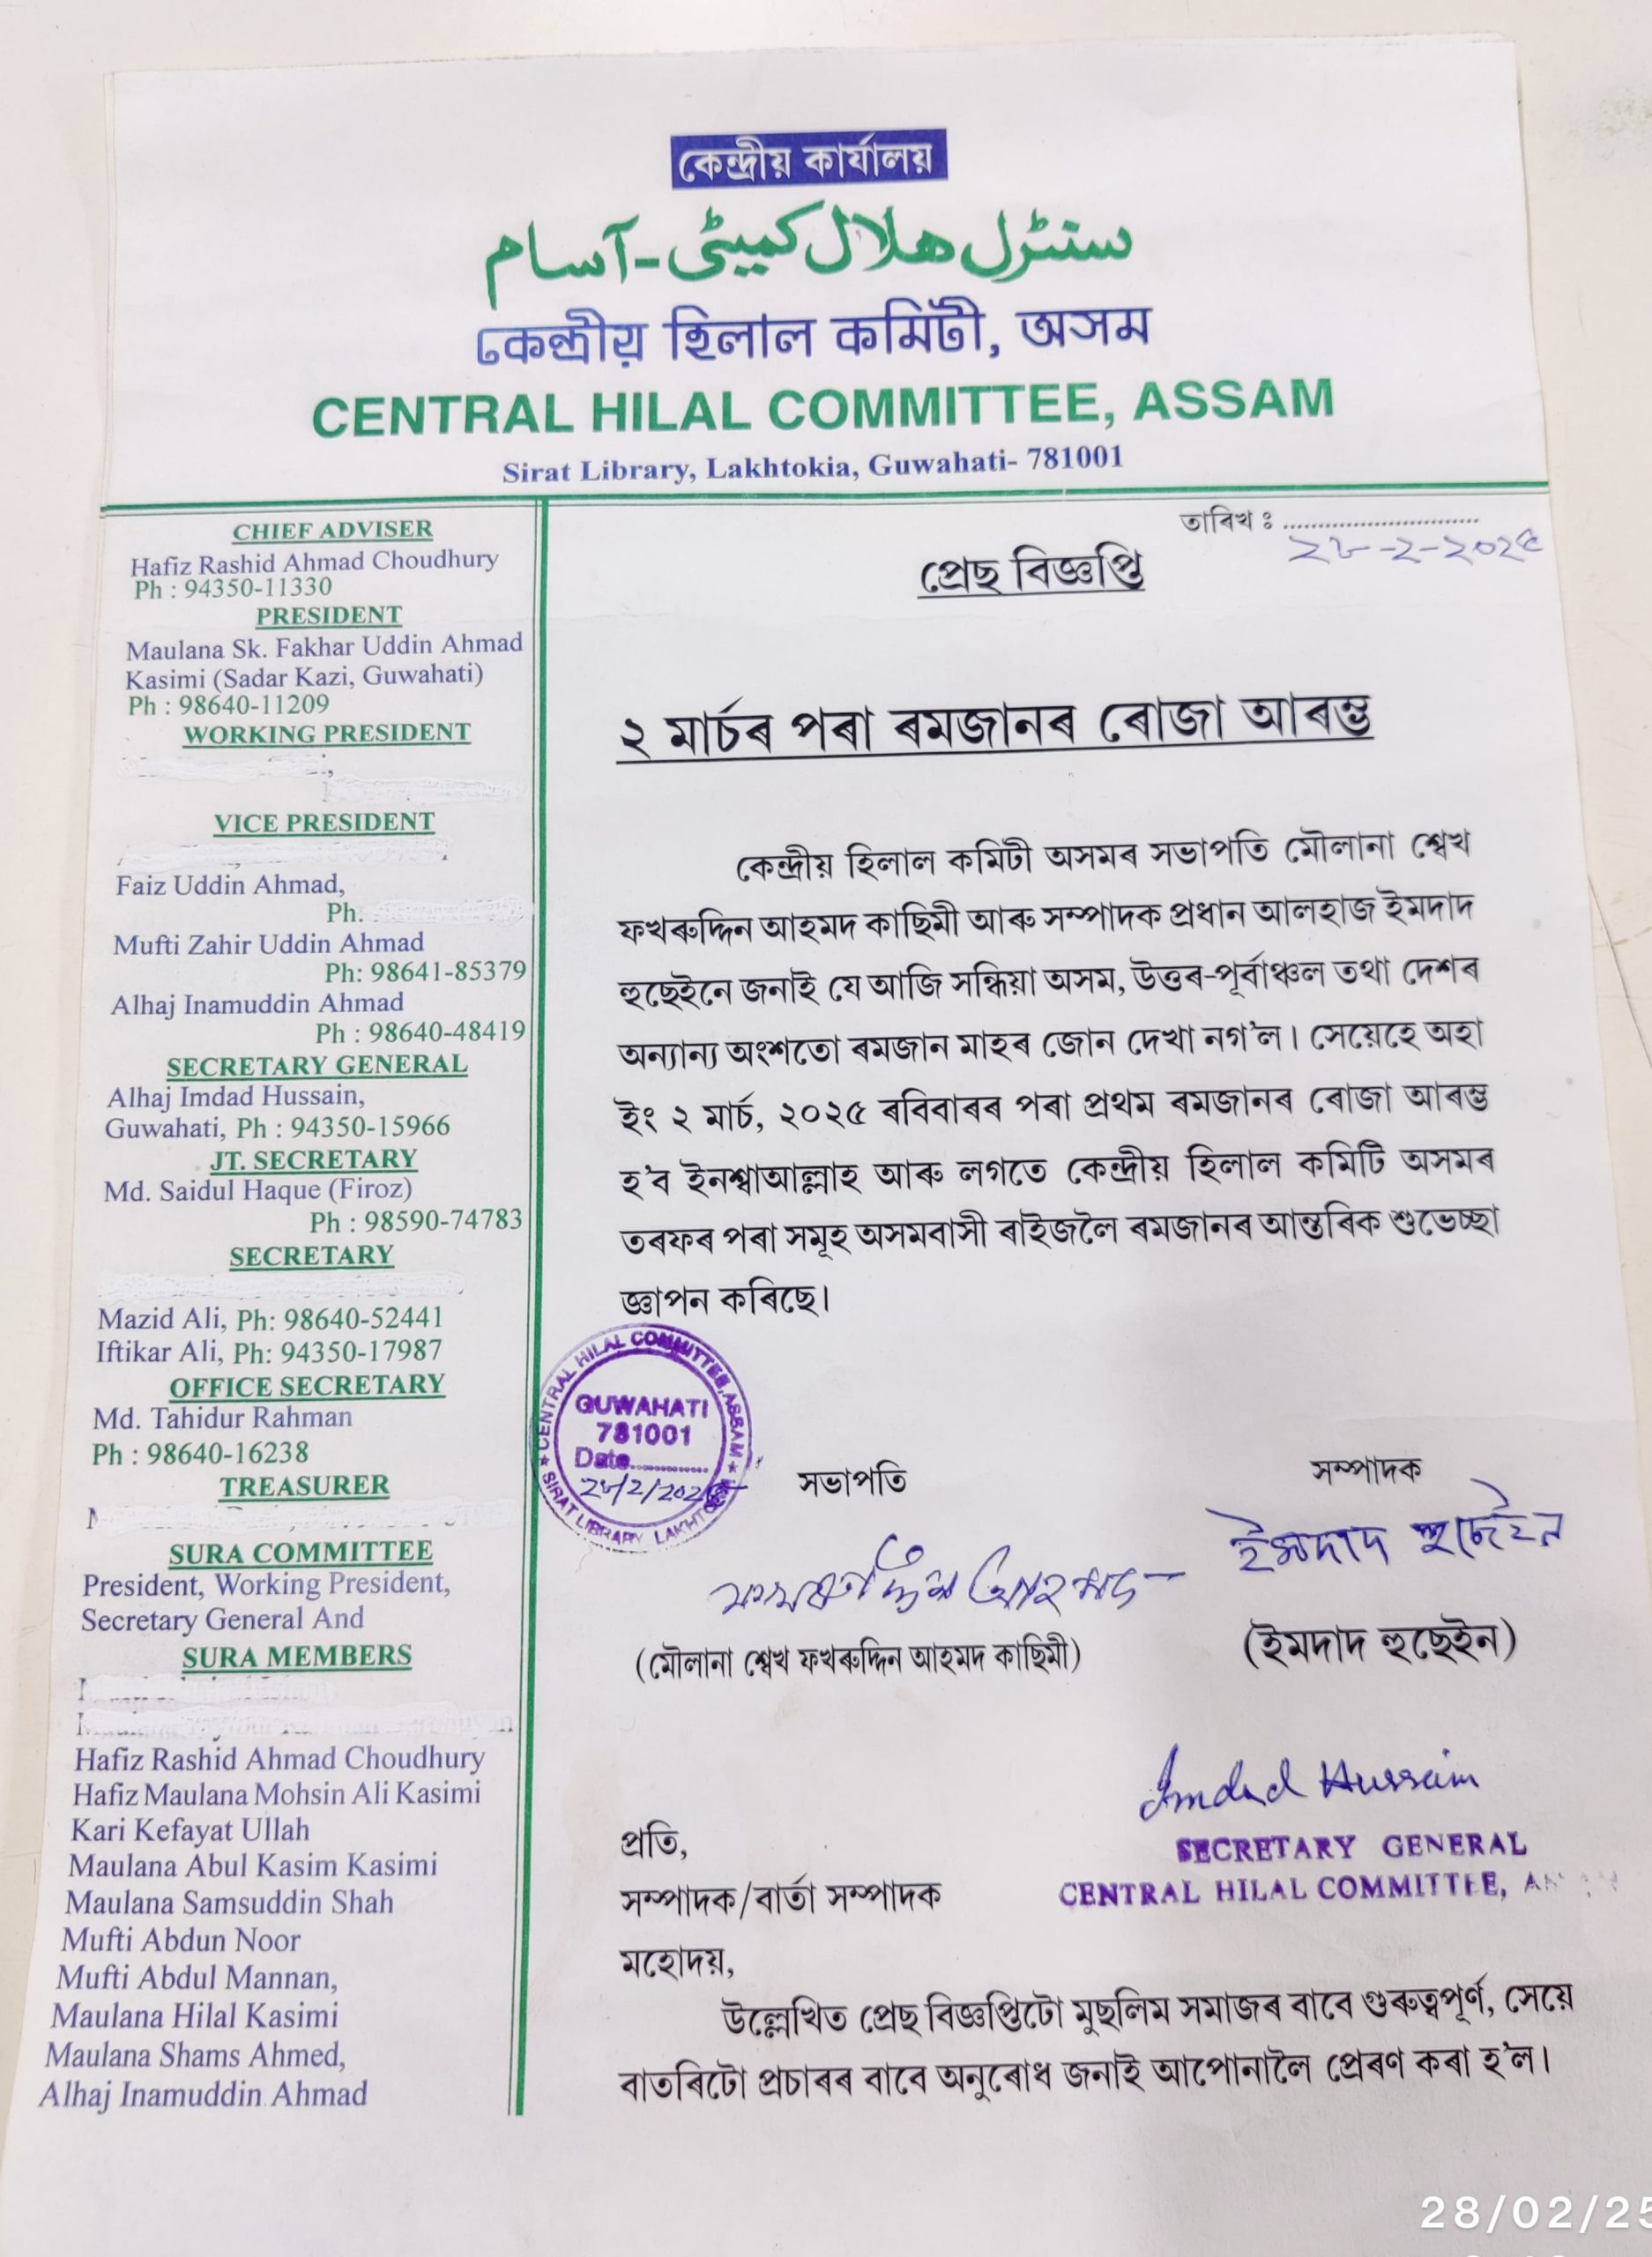 কেন্দ্ৰীয় কাৰ্যালয়
سنٹرل ھلال کمیٹی-آسام
কেন্দ্ৰীয় হিলাল কমিটী, অসম
CENTRAL HILAL COMMITTEE, ASSAM
Sirat Library, Lakhtokia, Guwahati- 781001
CHIEF ADVISER
Hafiz Rashid Ahmad Choudhury
Ph : 94350-11330
PRESIDENT
Maulana Sk. Fakhar Uddin Ahmad
Kasimi (Sadar Kazi, Guwahati)
Ph : 98640-11209
WORKING PRESIDENT
VICE PRESIDENT
Faiz Uddin Ahmad,
Ph.
Mufti Zahir Uddin Ahmad
Ph: 98641-85379
Alhaj Inamuddin Ahmad
Ph : 98640-48419
SECRETARY GENERAL
Alhaj Imdad Hussain,
Guwahati, Ph : 94350-15966
JT. SECRETARY
Md. Saidul Haque (Firoz)
Ph : 98590-74783
SECRETARY
Mazid Ali, Ph: 98640-52441
Iftikar Ali, Ph: 94350-17987
OFFICE SECRETARY
Md. Tahidur Rahman
Ph : 98640-16238
TREASURER
SURA COMMITTEE
President, Working President,
Secretary General And
SURA MEMBERS
Hafiz Rashid Ahmad Choudhury
Hafiz Maulana Mohsin Ali Kasimi
Kari Kefayat Ullah
Maulana Abul Kasim Kasimi
Maulana Samsuddin Shah
Mufti Abdun Noor
Mufti Abdul Mannan,
Maulana Hilal Kasimi
Maulana Shams Ahmed,
Alhaj Inamuddin Ahmad
তাৰিখ : ............................
২৮-২-২০২৫
প্ৰেছ বিজ্ঞপ্তি
২ মাৰ্চৰ পৰা ৰমজানৰ ৰোজা আৰম্ভ
কেন্দ্ৰীয় হিলাল কমিটী অসমৰ সভাপতি মৌলানা শ্বেখ
ফখৰুদ্দিন আহমদ কাছিমী আৰু সম্পাদক প্ৰধান আলহাজ ইমদাদ
হুছেইনে জনাই যে আজি সন্ধিয়া অসম, উত্তৰ-পূৰ্বাঞ্চল তথা দেশৰ
অন্যান্য অংশতো ৰমজান মাহৰ জোন দেখা নগ'ল। সেয়েহে অহা
ইং ২ মাৰ্চ, ২০২৫ ৰবিবাৰৰ পৰা প্ৰথম ৰমজানৰ ৰোজা আৰম্ভ
হ'ব ইনশ্বাআল্লাহ আৰু লগতে কেন্দ্ৰীয় হিলাল কমিটি অসমৰ
তৰফৰ পৰা সমূহ অসমবাসী ৰাইজলৈ ৰমজানৰ আন্তৰিক শুভেচ্ছা
জ্ঞাপন কৰিছে।
CENTRAL HILAL COMMITTEE, ASSAM
GUWAHATI
781001
Date..............
28/2/2025
SIRAT LIBRARY LAKHTOKIA
সভাপতি
সম্পাদক
ফখৰুদ্দিন আহমদ
ইমদাদ হুছেইন
(মৌলানা শ্বেখ ফখৰুদ্দিন আহমদ কাছিমী)
(ইমদাদ হুছেইন)
Imdad Hussain
SECRETARY GENERAL
CENTRAL HILAL COMMITTEE, ASSAM
প্ৰতি,
সম্পাদক/বাৰ্তা সম্পাদক
মহোদয়,
উল্লেখিত প্ৰেছ বিজ্ঞপ্তিটো মুছলিম সমাজৰ বাবে গুৰুত্বপূৰ্ণ, সেয়ে
বাতৰিটো প্ৰচাৰৰ বাবে অনুৰোধ জনাই আপোনালৈ প্ৰেৰণ কৰা হ'ল।
28/02/25